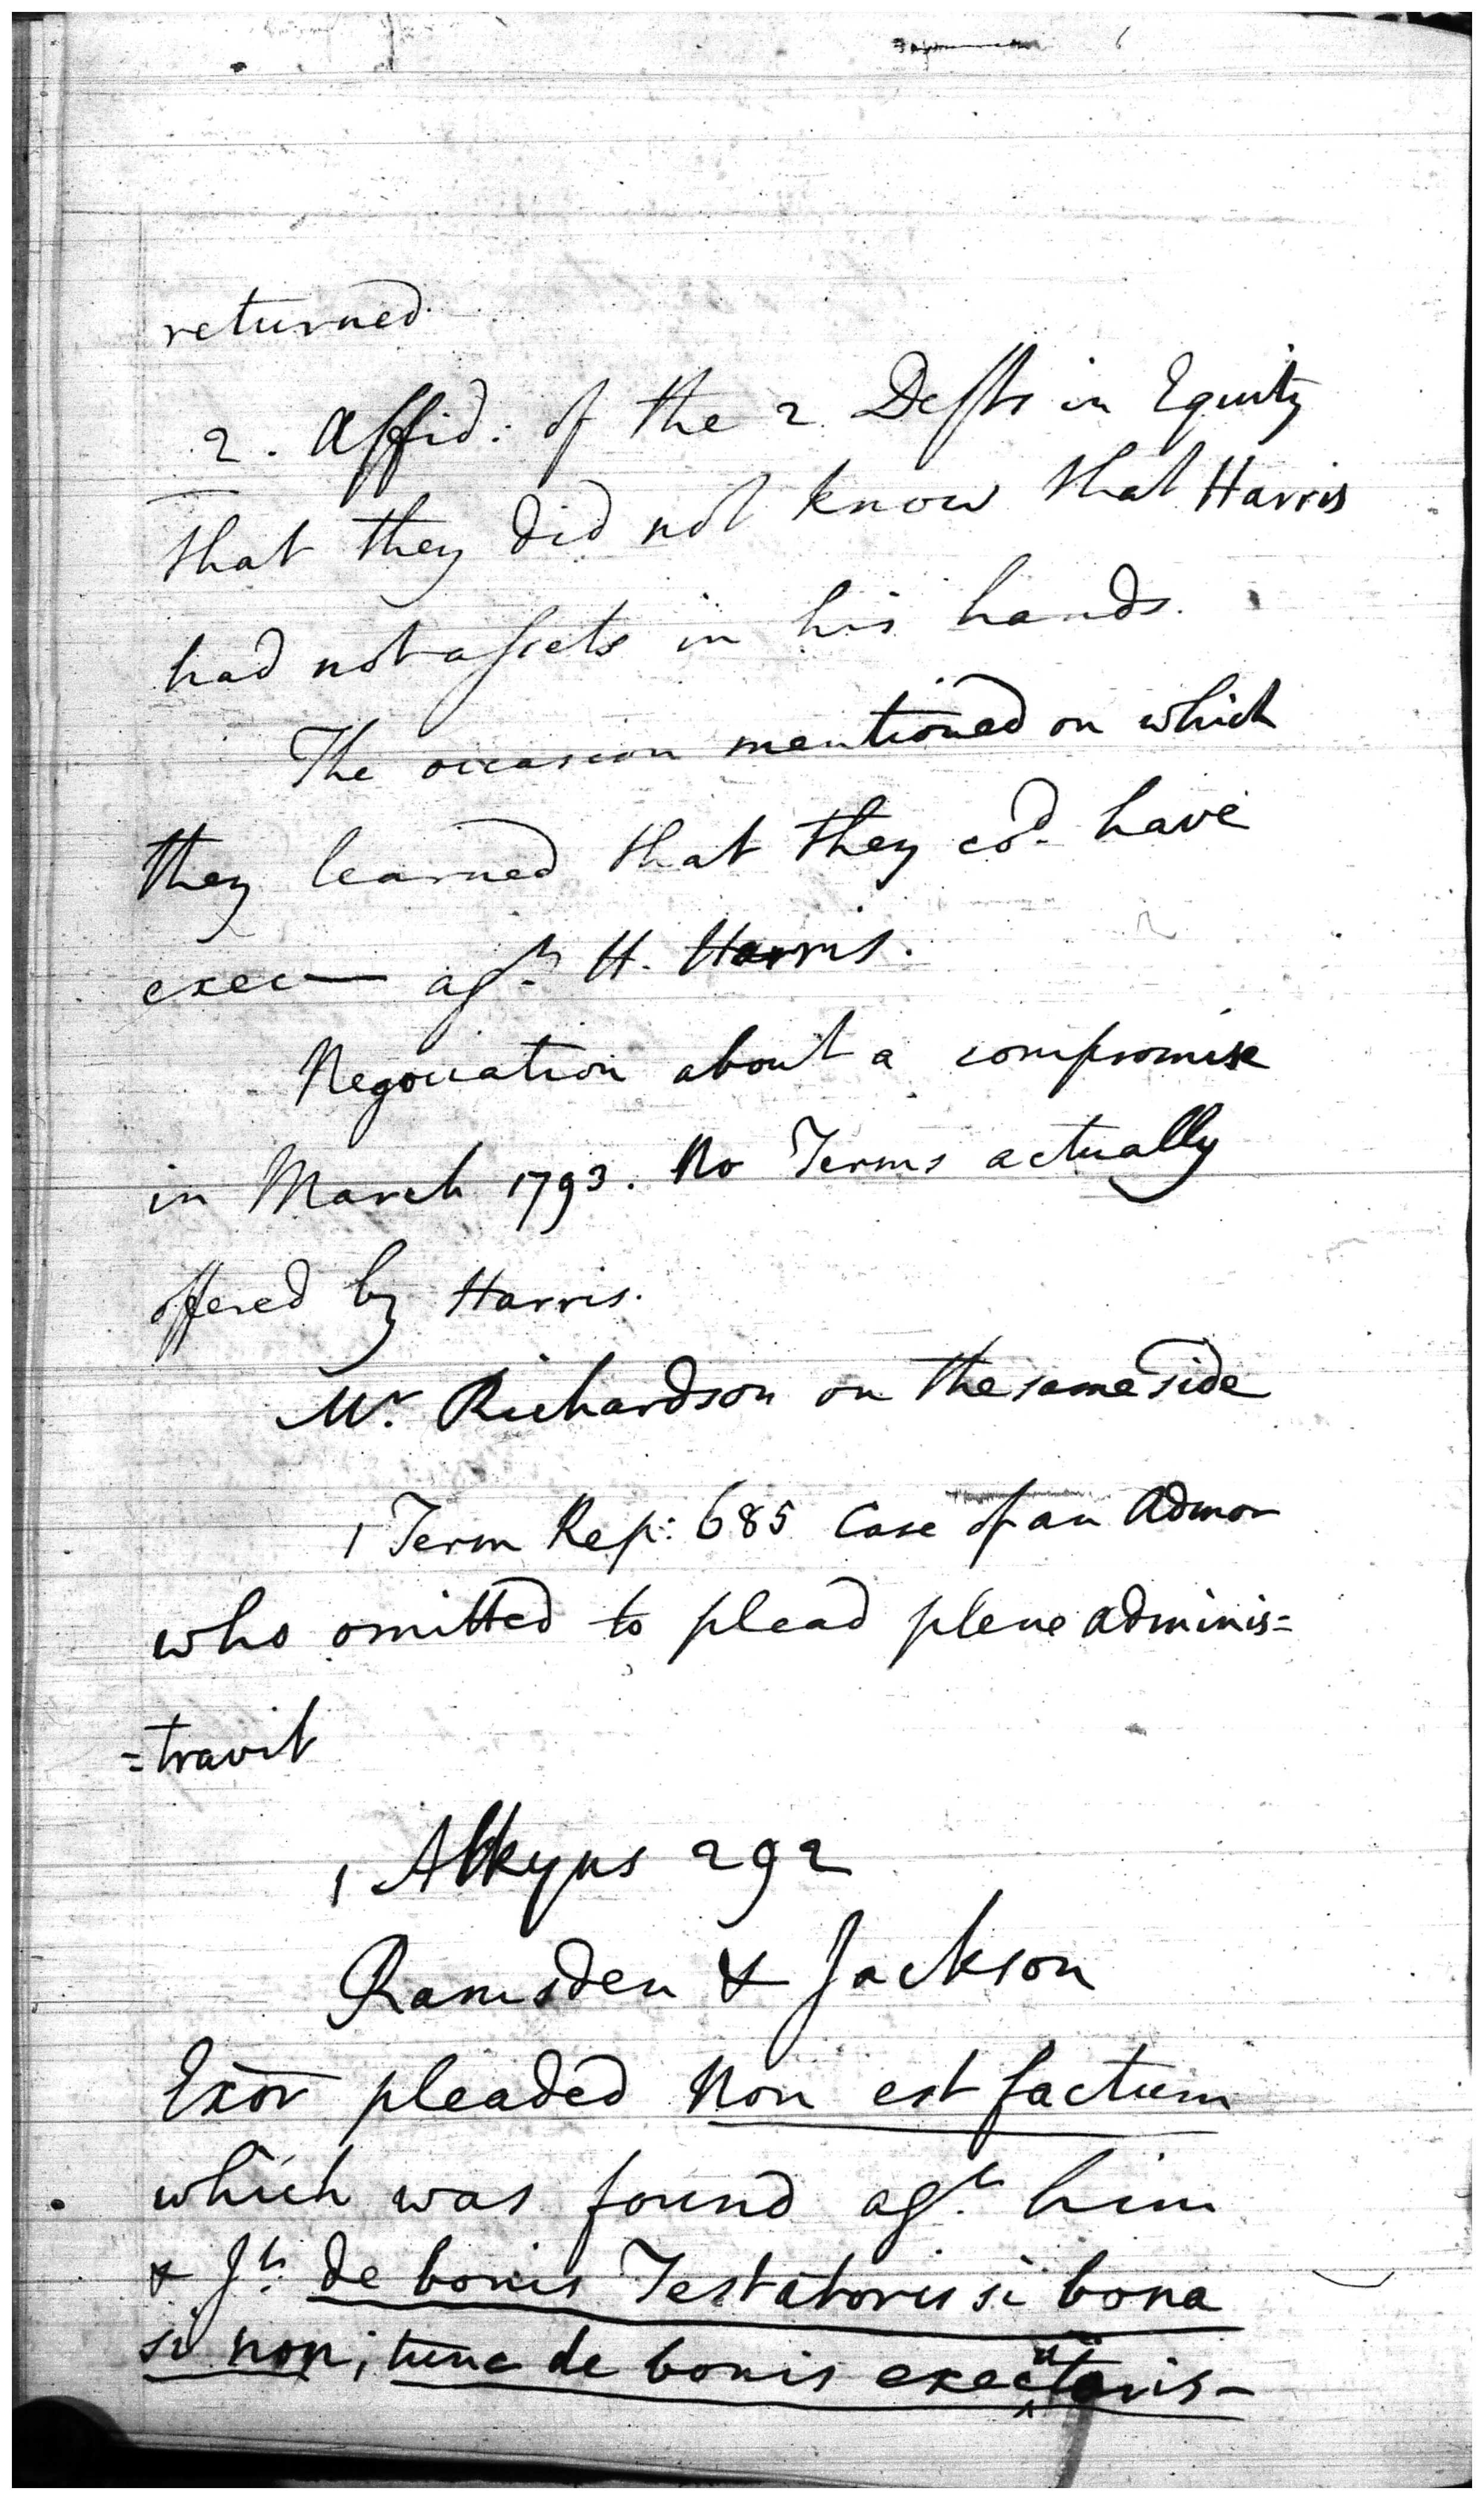 returned
2. Affid: of the 2 Defts in Equity
that they did not know that Harris
had not assets in his hands.
The occasion mentioned on which
they learned that they cod. have
exec— agt. H. Harris.
Negociation about a compromise
in March 1793. No Terms actually
offered by Harris.
Mr. Richardson on the same side
1 Term Rep: 685 Case of an Admor
who omitted to plead plene adminis=
=travit
1 Atkyns 292
Ramsden & Jackson
Exor pleaded Non est factum
which was found agt. him
& Jt. de bonis Testatoris si bona
si non; tunc de bonis executoris-